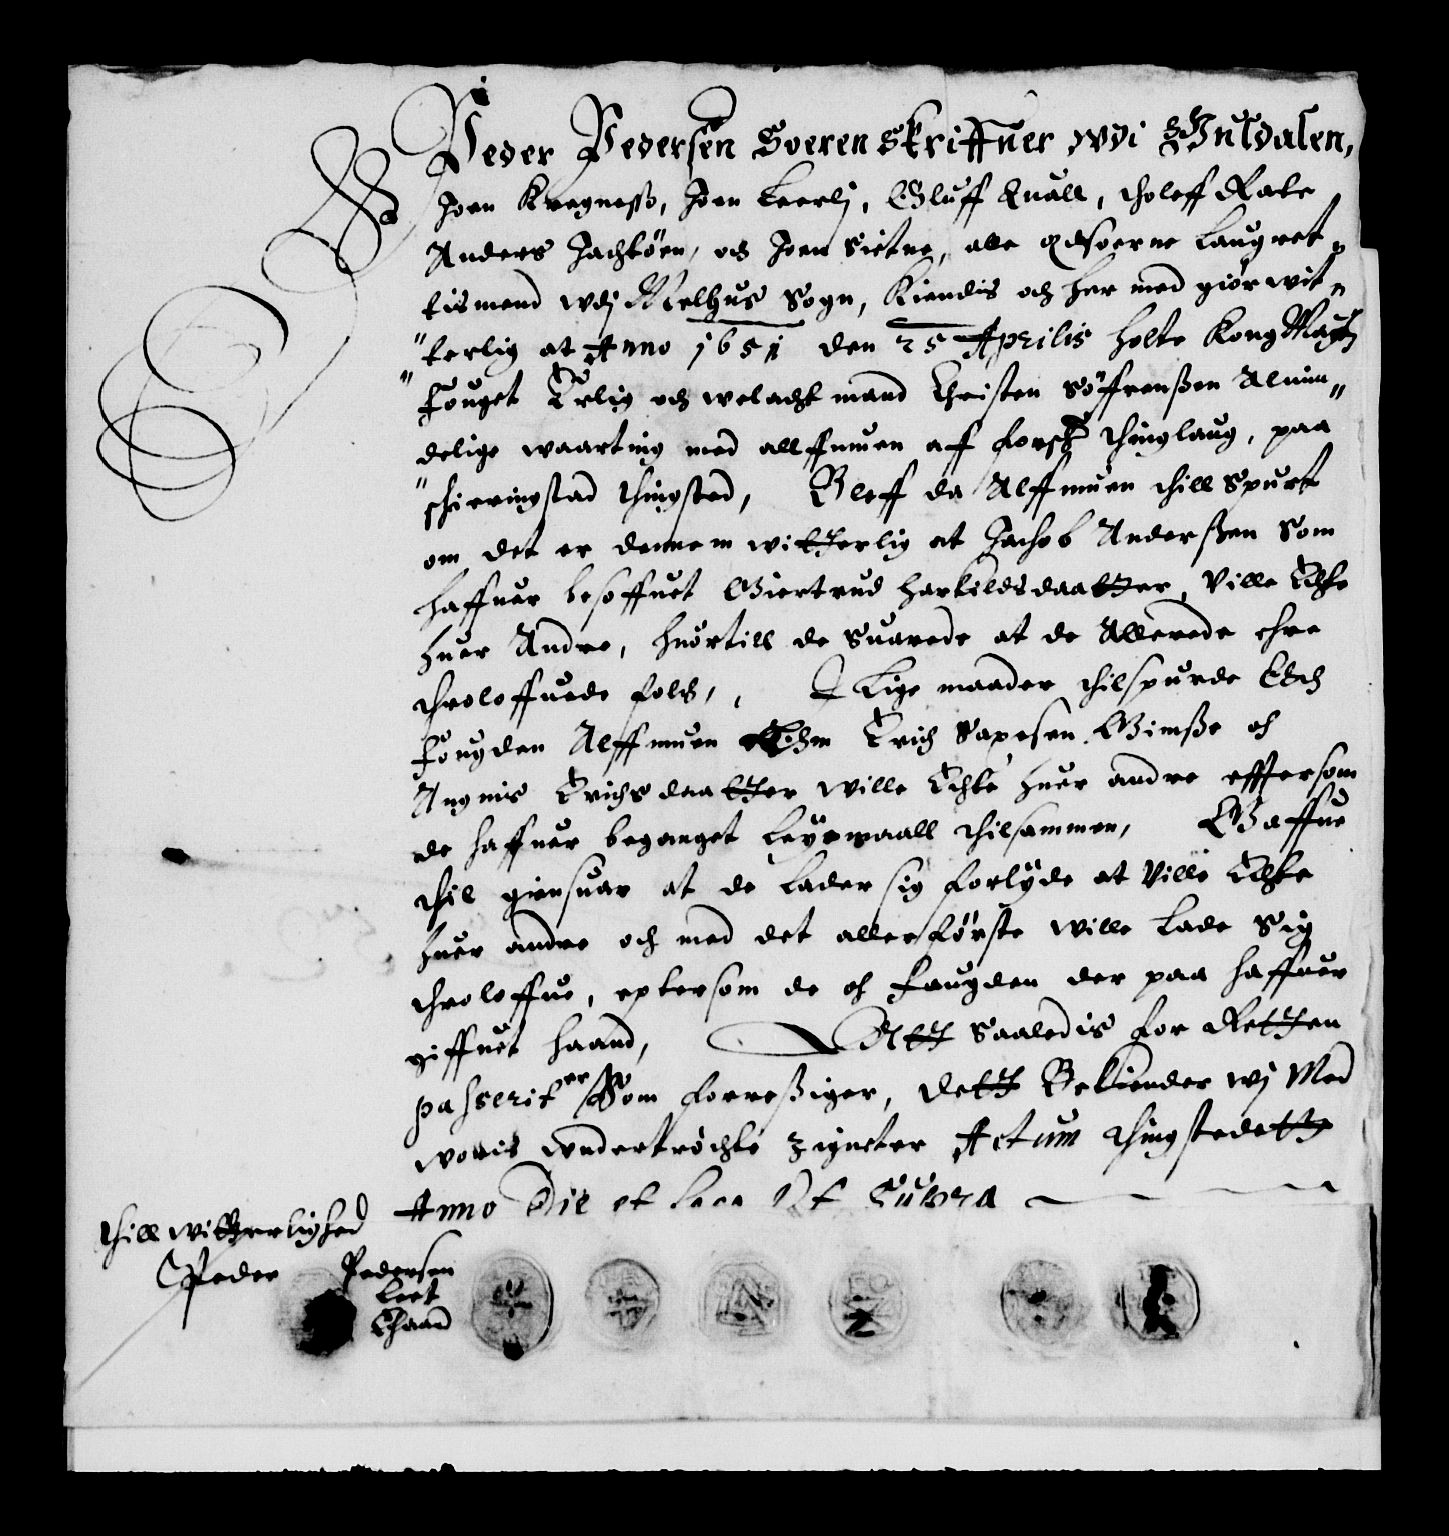 Peder Pedersen Soeren Skriffuer wdi Guldalen,
Joen Kregneß, Joen Leerlj, Oluff Quall, Tholeff Rate
Anders Jachtöen, och Joen Sietne, alle Edsorne Laugret,,
tismend wdj Melhus Sogn, Kiendis och her med giör wit,,
"terlig at Anno 1651 den 25 Aprilis holte Kong Maytz
"Fouget Erlig och welacht mand Christen Söffrenßen Almin,,
delige waarting med allffmuen af forsch Thinglaug, paa
"schieringstad Thingsted, Bleff da Alffmuen thill Spurt
om det er dennem witterlig at Jachob Anderßen Som
haffuer besoffuet Giertrud Harkildsdaatter, Ville Echte
huer Andre, huortill de Suarede at de Allerede ehre
throloffuede folch, J Lige maader thilspurde Och
Fougden Alffmuen Om Erich Saxesen Gimße och
Angnis Erichsdaatter wille Echte huer andre effter som
de haffuer beganget Leyermaall thilsammen, Gaffue
thil giensuar at de Lader sig forlyde at Ville Echte
huer andre och med det aller første wille Lade Sig
throloffue, eptersom de och Faugden der paa haffuer
giffuet haand, Att Saaledis for Retten
passerit er Som forreßiger, dett Bekiender wj Med
woris wndertröchte Zigneter Actum Thingstedett
Anno Die et Loco Ut Supra
Thill witterlighed
Peder Pedersen
Eghaand